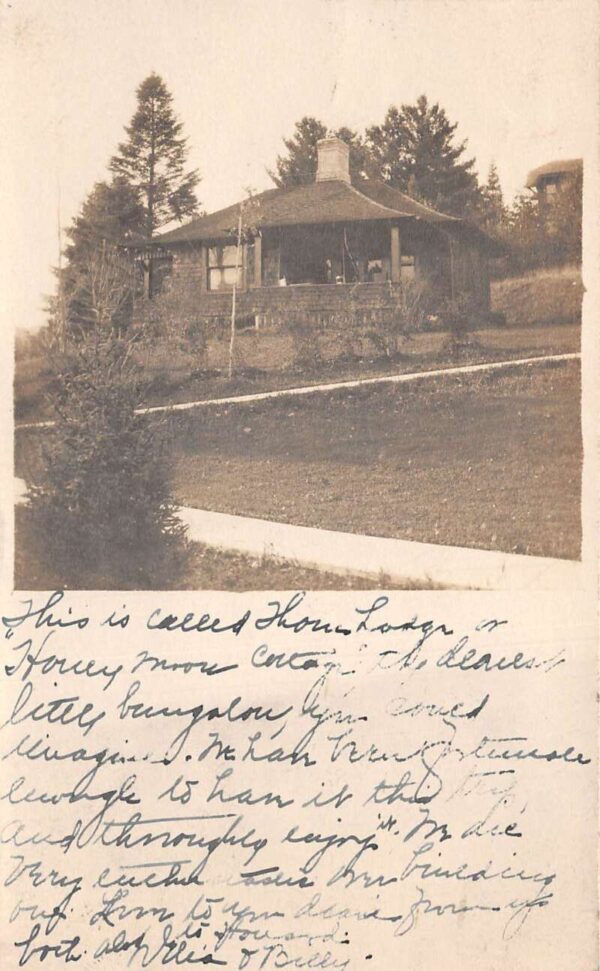 This is called Thorn Lodge or
Honey moon Cottage, the dearest
little bungalow, you could
imagine. We have been fortunate
enough to have it this
and thoroughly enjoy it. We are
very over building
one. Love to you dear from us
both also to Howard.
& Billy.